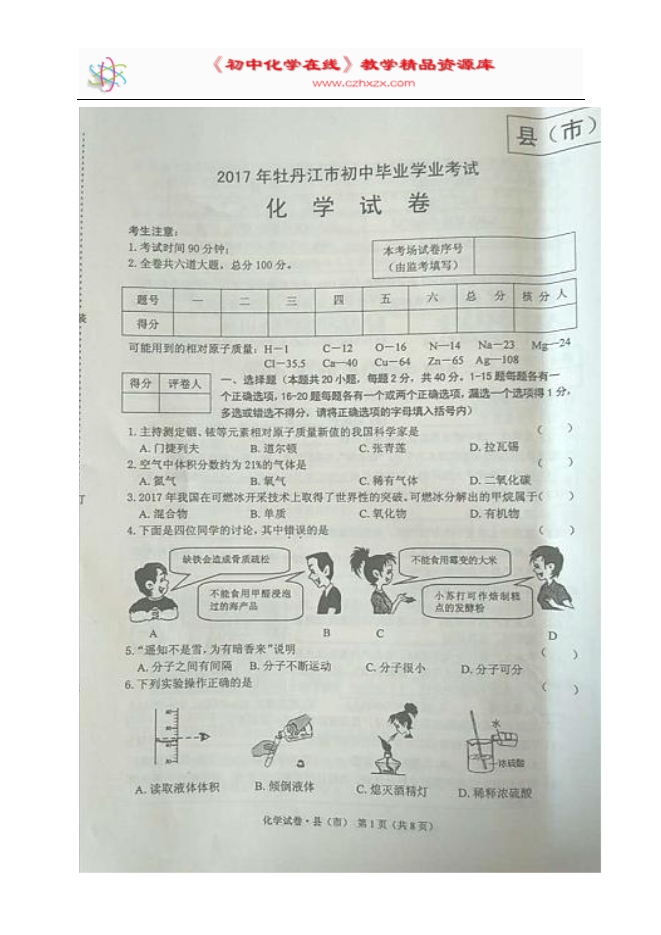 《初中化学在线》教学精品资源库
www.czhxzx.com
县（市）
2017年牡丹江市初中毕业学业考试
化 学 试 卷
考生注意：
1.考试时间90分钟；
2.全卷共六道大题，总分100分。
本考场试卷序号
（由监考填写）
题号 一 二 三 四 五 六 总 分 核 分 人
得分
装
可能用到的相对原子质量：H—1 C—12 O—16 N—14 Na—23 Mg—24
Cl—35.5 Ca—40 Cu—64 Zn—65 Ag—108
得分 评卷人
一、选择题（本题共20小题，每题2分，共40分。1-15题每题各有一
个正确选项，16-20题每题各有一个或两个正确选项，漏选一个选项得1分，
多选或错选不得分，请将正确选项的字母填入括号内）
1.主持测定铟、铱等元素相对原子质量新值的我国科学家是 （ ）
A.门捷列夫 B.道尔顿 C.张青莲 D.拉瓦锡
2.空气中体积分数约为21%的气体是 （ ）
A.氮气 B.氧气 C.稀有气体 D.二氧化碳
3.2017年我国在可燃冰开采技术上取得了世界性的突破。可燃冰分解出的甲烷属于（ ）
订
A.混合物 B.单质 C.氧化物 D.有机物
4.下面是四位同学的讨论，其中错误的是 （ ）
缺铁会造成骨质疏松
不能食用甲醛浸泡
过的海产品
不能食用霉变的大米
小苏打可作焙制糕
点的发酵粉
A B C D
5.“遥知不是雪，为有暗香来”说明 （ ）
A.分子之间有间隔 B.分子不断运动 C.分子很小 D.分子可分
6.下列实验操作正确的是 （ ）
水
浓硫酸
A.读取液体体积 B.倾倒液体 C.熄灭酒精灯 D.稀释浓硫酸
化学试卷·县（市） 第1页（共8页）